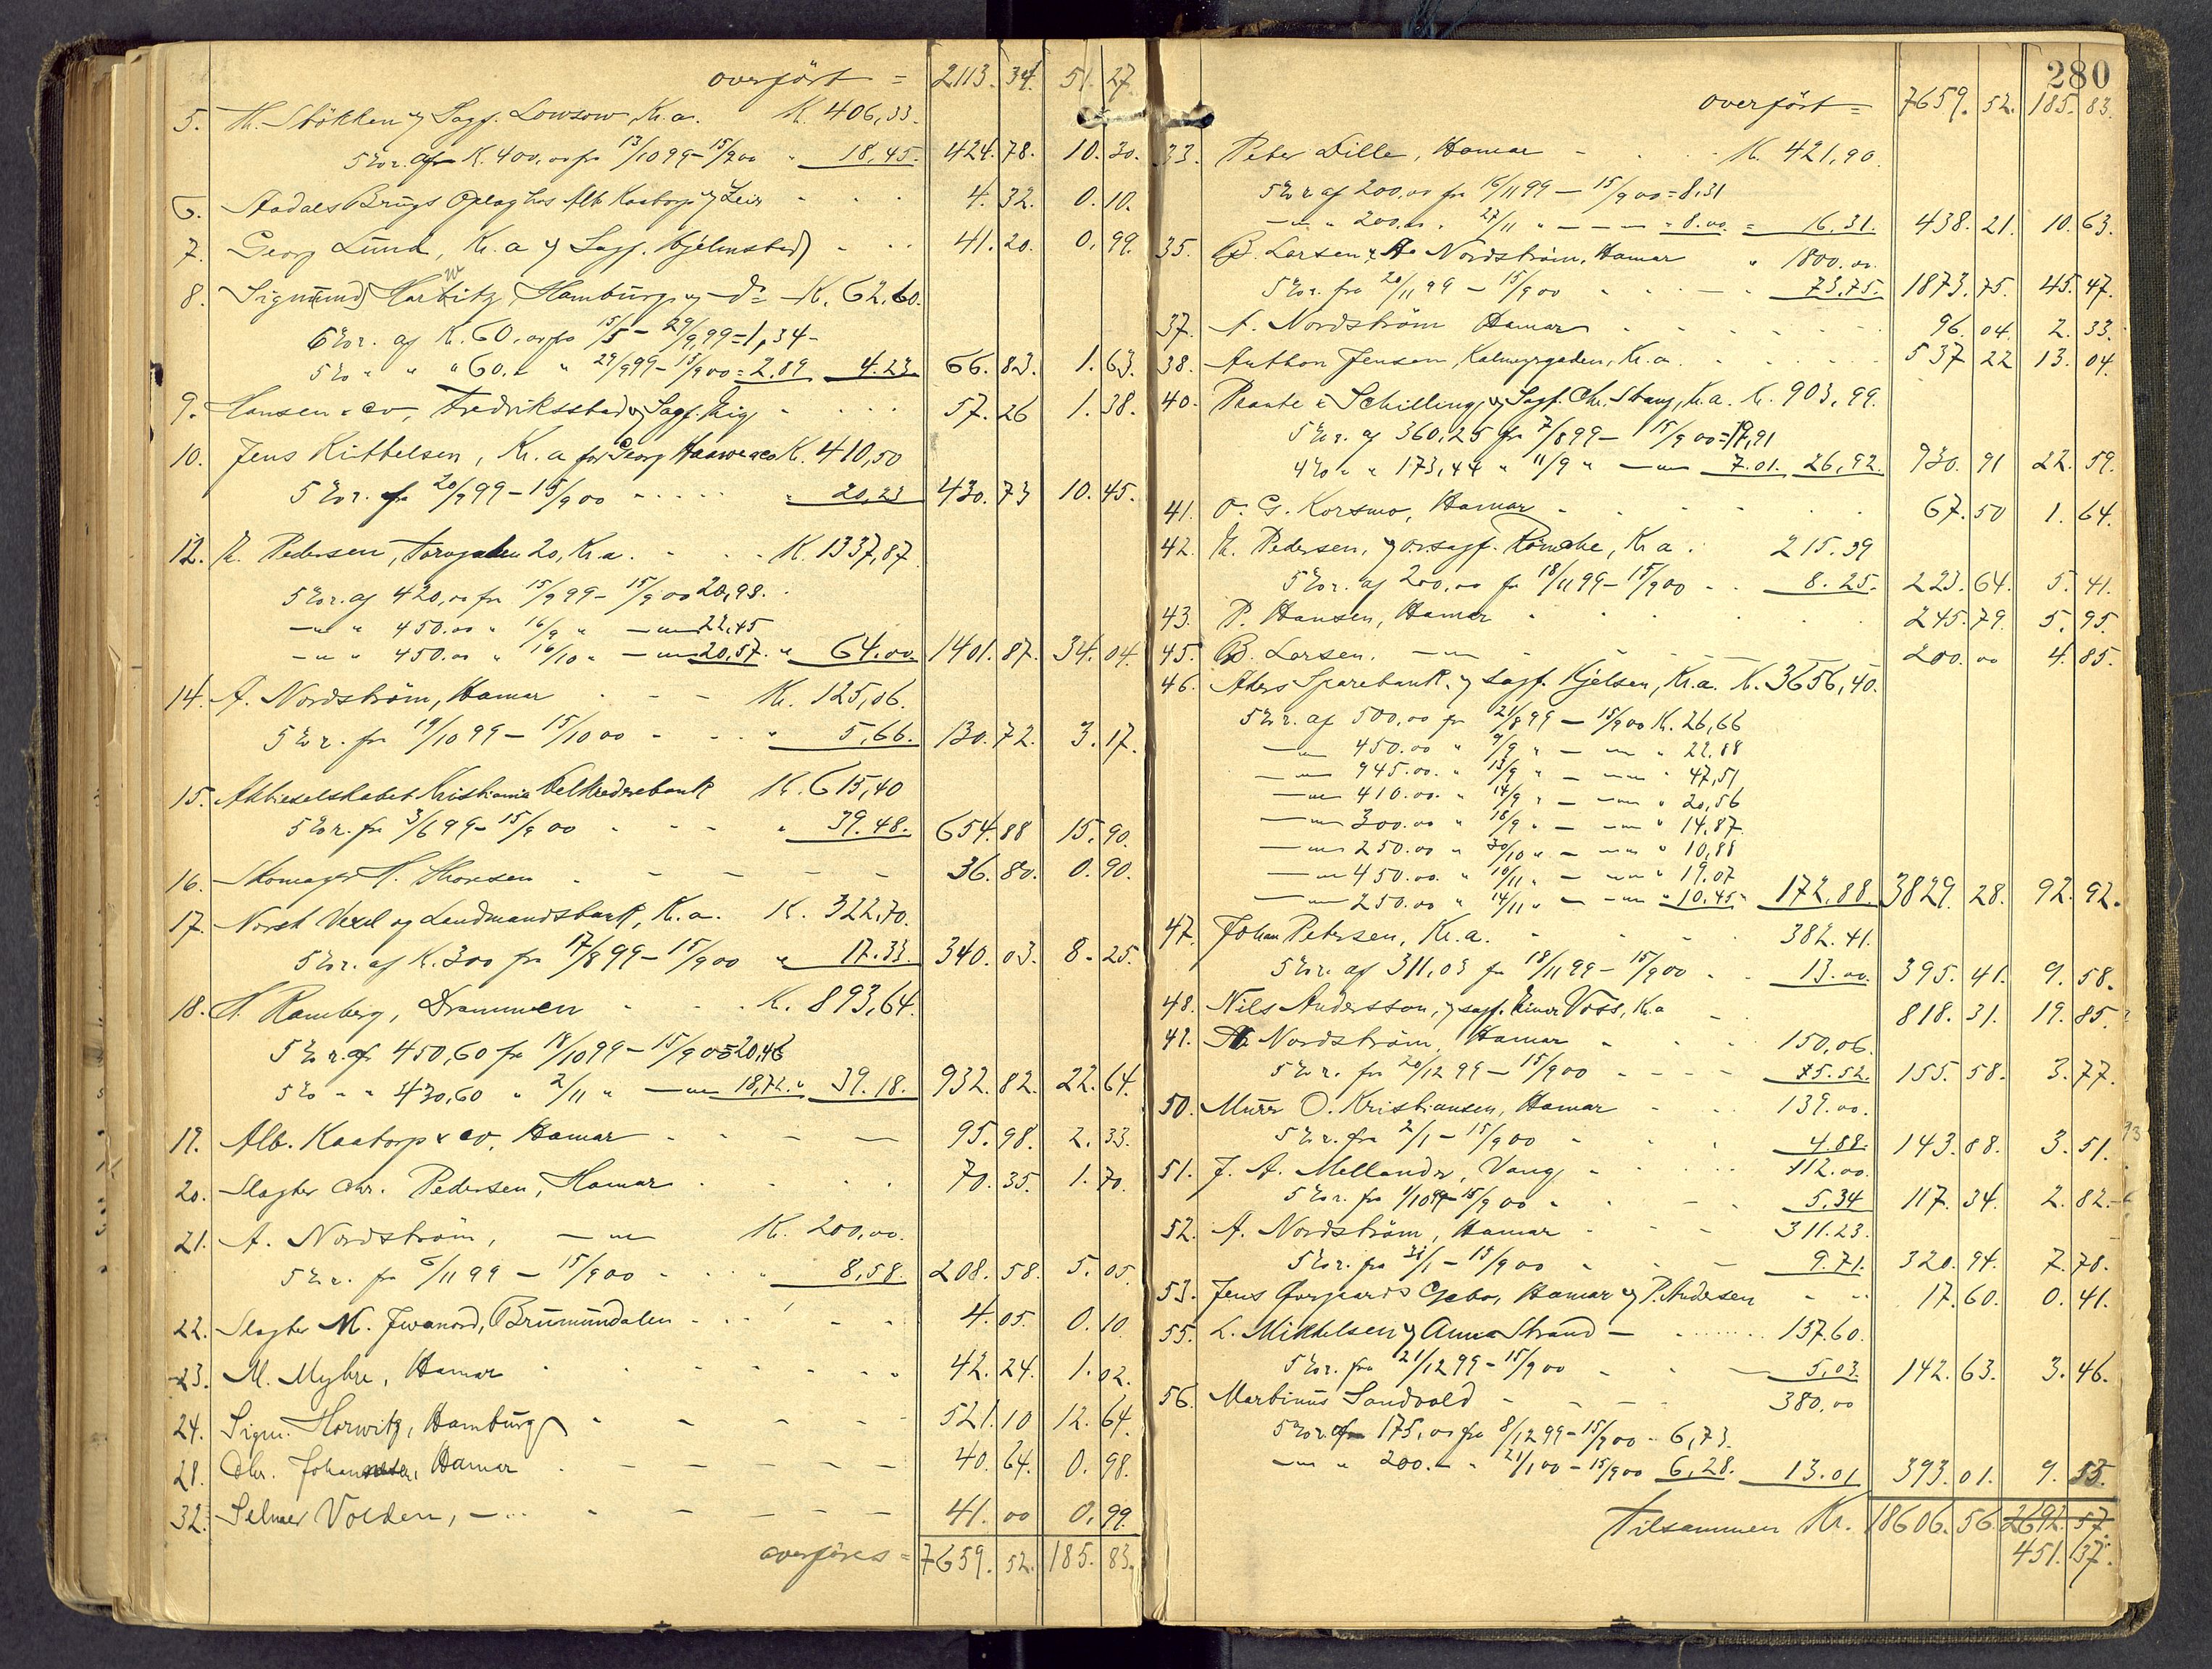 overført = 2113. 34. 51. 27
5. Th. Stökken y Sagf. Lowsow, Kr.a. K. 406,33.
5 % r. af K. 400,00 fra 13/10 99 - 15/9 00 " 18,45. 424. 78. 10. 30.
6. Aadals Brugs Oplag hos Alb. Kaatorp y Leir 4. 32. 0. 10.
7. Georg Lund, Kr.a y Sagf. Hjelmstad 41. 20. 0. 99.
8. Sigmund Harwitz, Hamburg y do K. 62,60.
6 % r. af K. 60,00 fra 15/5 - 29/9 99 = 1,34 -
5 % " " " 60. " " 29/9 99 - 15/9 00 = 2.89 4.23. 66. 83. 1. 63.
9. Hansen & co, Fredriksstad y Sagf. 57. 26 1. 38.
10. Jens Kittelsen, Kr.a for Georg K. 410,50
5 % r. fra 20/9 99 - 15/9 00 " 20,23 430. 73 10. 45.
12. N. Pedersen, Torvgaden 20, Kr.a. K. 1337,87
5 % r. af 420,00 fra 15/9 99 - 15/9 00 20,98.
- " - " 450.00 " 16/9 " - " - 22,45
- " - " 450.00 " 16/10 " - " - 20,57. " 64.00 1401. 87. 34. 04.
14. A. Nordström, Hamar Kr. 125,06.
5 % r. fra 19/10 99 - 15/10 00 " 5,66. 130. 72. 3. 17.
15. Aktieselskabet Kristiania Vekselerebank K. 615,40
5 % r. fra 3/6 99 - 15/9 00 " 39.48. 654. 88 15. 90.
16. Skomager H. Thoresen 36. 80. 0. 90.
17. Norsk Vexel og Landmandsbank, Kr.a. K. 322,70.
5 % r. af K. 300 fra 17/8 99 - 15/9 00 " 17.33. 340. 03. 8. 25.
18. H. Ramberg, Drammen K. 893,64.
5 % r. af 450,60 fra 18/10 99 - 15/9 00 = 20,46
5 % " " 430,60 " 2/11 " - " - 18,72. " 39.18. 932. 82. 22. 64.
19. Alb. Kaatorp & co. Hamar 95. 98. 2. 33.
20. Slagter Chr. Pedersen, Hamar 70. 35. 1. 70.
21. A. Nordström, - " - K. 200,00.
5 % r. fra 6/11 99 - 15/9 00 " 8,58. 208. 58. 5. 05.
22. Slagter M. Brumunddalen 4. 05. 0. 10
23. M. Myhre, Hamar 42. 24. 1. 02.
24. Sigm. Horwitz, Hamburg 521. 10 12. 64.
28. Chr. Johannesen, Hamar 40. 64. 0. 98.
32. Selmer Volden, - " - 41. 00 0, 99.
overføres = 7659. 52. 185. 83.
280
overført = 7659. 52. 185. 83.
33. Peter Dille, Hamar K. 421,90.
5 % r. af 200,00 fra 16/11 99 - 15/9 00 = 8,31
- " - " 200,00 " 27/11 " - " - = 8.00 = 16.31. 438. 21. 10. 63.
35. B. Larsen & A. Nordström, Hamar " 1800.00.
5 % r. fra 20/11 99 - 15/9 00 " 73,75. 1873. 75. 45. 47.
37. A. Nordström Hamar 96. 04. 2. 33.
38. Anthon Jensen, Kalmeyrgaden, Kr.a 537 22 13. 04.
40. & Schilling, y Sagf. Chr. Stang, Kr.a. K. 903,99.
5 % r. af 360,25 fra 7/8 99 - 15/9 00 = 19,91
4 % " " 173,44 " 11/9 " - " - 7.01. 26,92. 930. 91 22. 59.
41. O. G. Korsmo, Hamar 67. 50 1. 64.
42. N. Pedersen, y o.r.sagf. Kr.a. 215.39
5 % r. af 200,00 fra 18/11 99 - 15/9 00 8.25. 223. 64. 5. 41.
43. P. Hansen, Hamar 245. 79. 5. 95.
45. B. Larsen. - " - 200. 00 4. 85.
46. Akers Sparebank y sagf. Kjelsen, Kr.a. K. 3656,40.
5 % r. af 500,00 fra 21/8 99 - 15/9 00 K. 26,66
- " - 450.00 " 9/9 " - " - " 22.88
- " - 945.00. " 13/9 " - " - " 47,51
- " - 410.00. " 14/9 " - " - " 20,56
- " - 300.00 " 18/9 " - " - " 14,87.
- " - 250.00 " 30/10 " - " - " 10,88
- " - 450.00. " 10/11 " - " - " 19.07
- " - 250.00 " 14/11 " - " - " 10,45 " 172,88. 3829. 28. 92. 92.
47. Johan Petersen, Kr.a. 382.41.
5 % r. af 311,03 fra 18/11 99 - 15/9 00 13.00. 395. 41. 9. 58.
48. Nils Andersson, y sagf. Einer Voss, Kr.a 818. 31. 19. 85.
49. A. Nordström, Hamar 150,06.
5 % r. fra 20/12 99 - 15/9 00 75.52. 155. 58. 3. 77.
50. Murer O. Kristiansen, Hamar 139.00.
5 % r. fra 2/1 - 15/9 00 4.88. 143. 88. 3. 51.
51. J. A. Mellander, Vang 112.00.
5 % r. fra 1/10 99 - 15/9 00 5,34 117. 34. 2. 82.
52. A. Nordström, Hamar 311.23.
5 % r. fra 31/1 - 15/9 00 9.71. 320. 94. 7. 78.
53. Jens Hamar y P. Andersen 17. 60. 0. 41.
55. L. Mikkelsen y Anna Strand - 137.60.
5 % r. fra 21/12 99 - 15/9 00 5,03. 142. 63. 3. 46.
56. Martinus Sandvold 380,00
5 % r. af 175,00 fra 8/12 99 - 15/9 00 - 6,73.
- " - " 200. - " 21/1 00 - 15/9 00 6,28. 13.01 393. 01. 9. 55.
Tilsammen Kr. 18606. 56. 2692. 57.
451. 37.